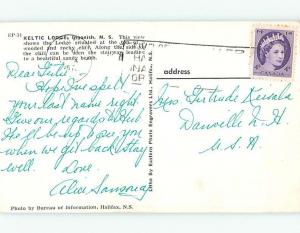 EP-31
KELTIC LODGE, Ingonish, N. S. This view
shows the Lodge situated at the
wooded and rocky cliff. Along the side of
the cliff can be seen the stairway leading
to a beautiful sandy beach.
address
Dear Gertie,
Hope I've spelt
your last name right.
Give our regards &
He'll be up to see you
when we get back. Stay
well. Love
Alice
Miss Gertrude
Danville N. H.
U. S. A.
Litho By Eastern Photo Engravers Ltd., Halifax, N.S.
Photo by Bureau of Information, Halifax, N.S.